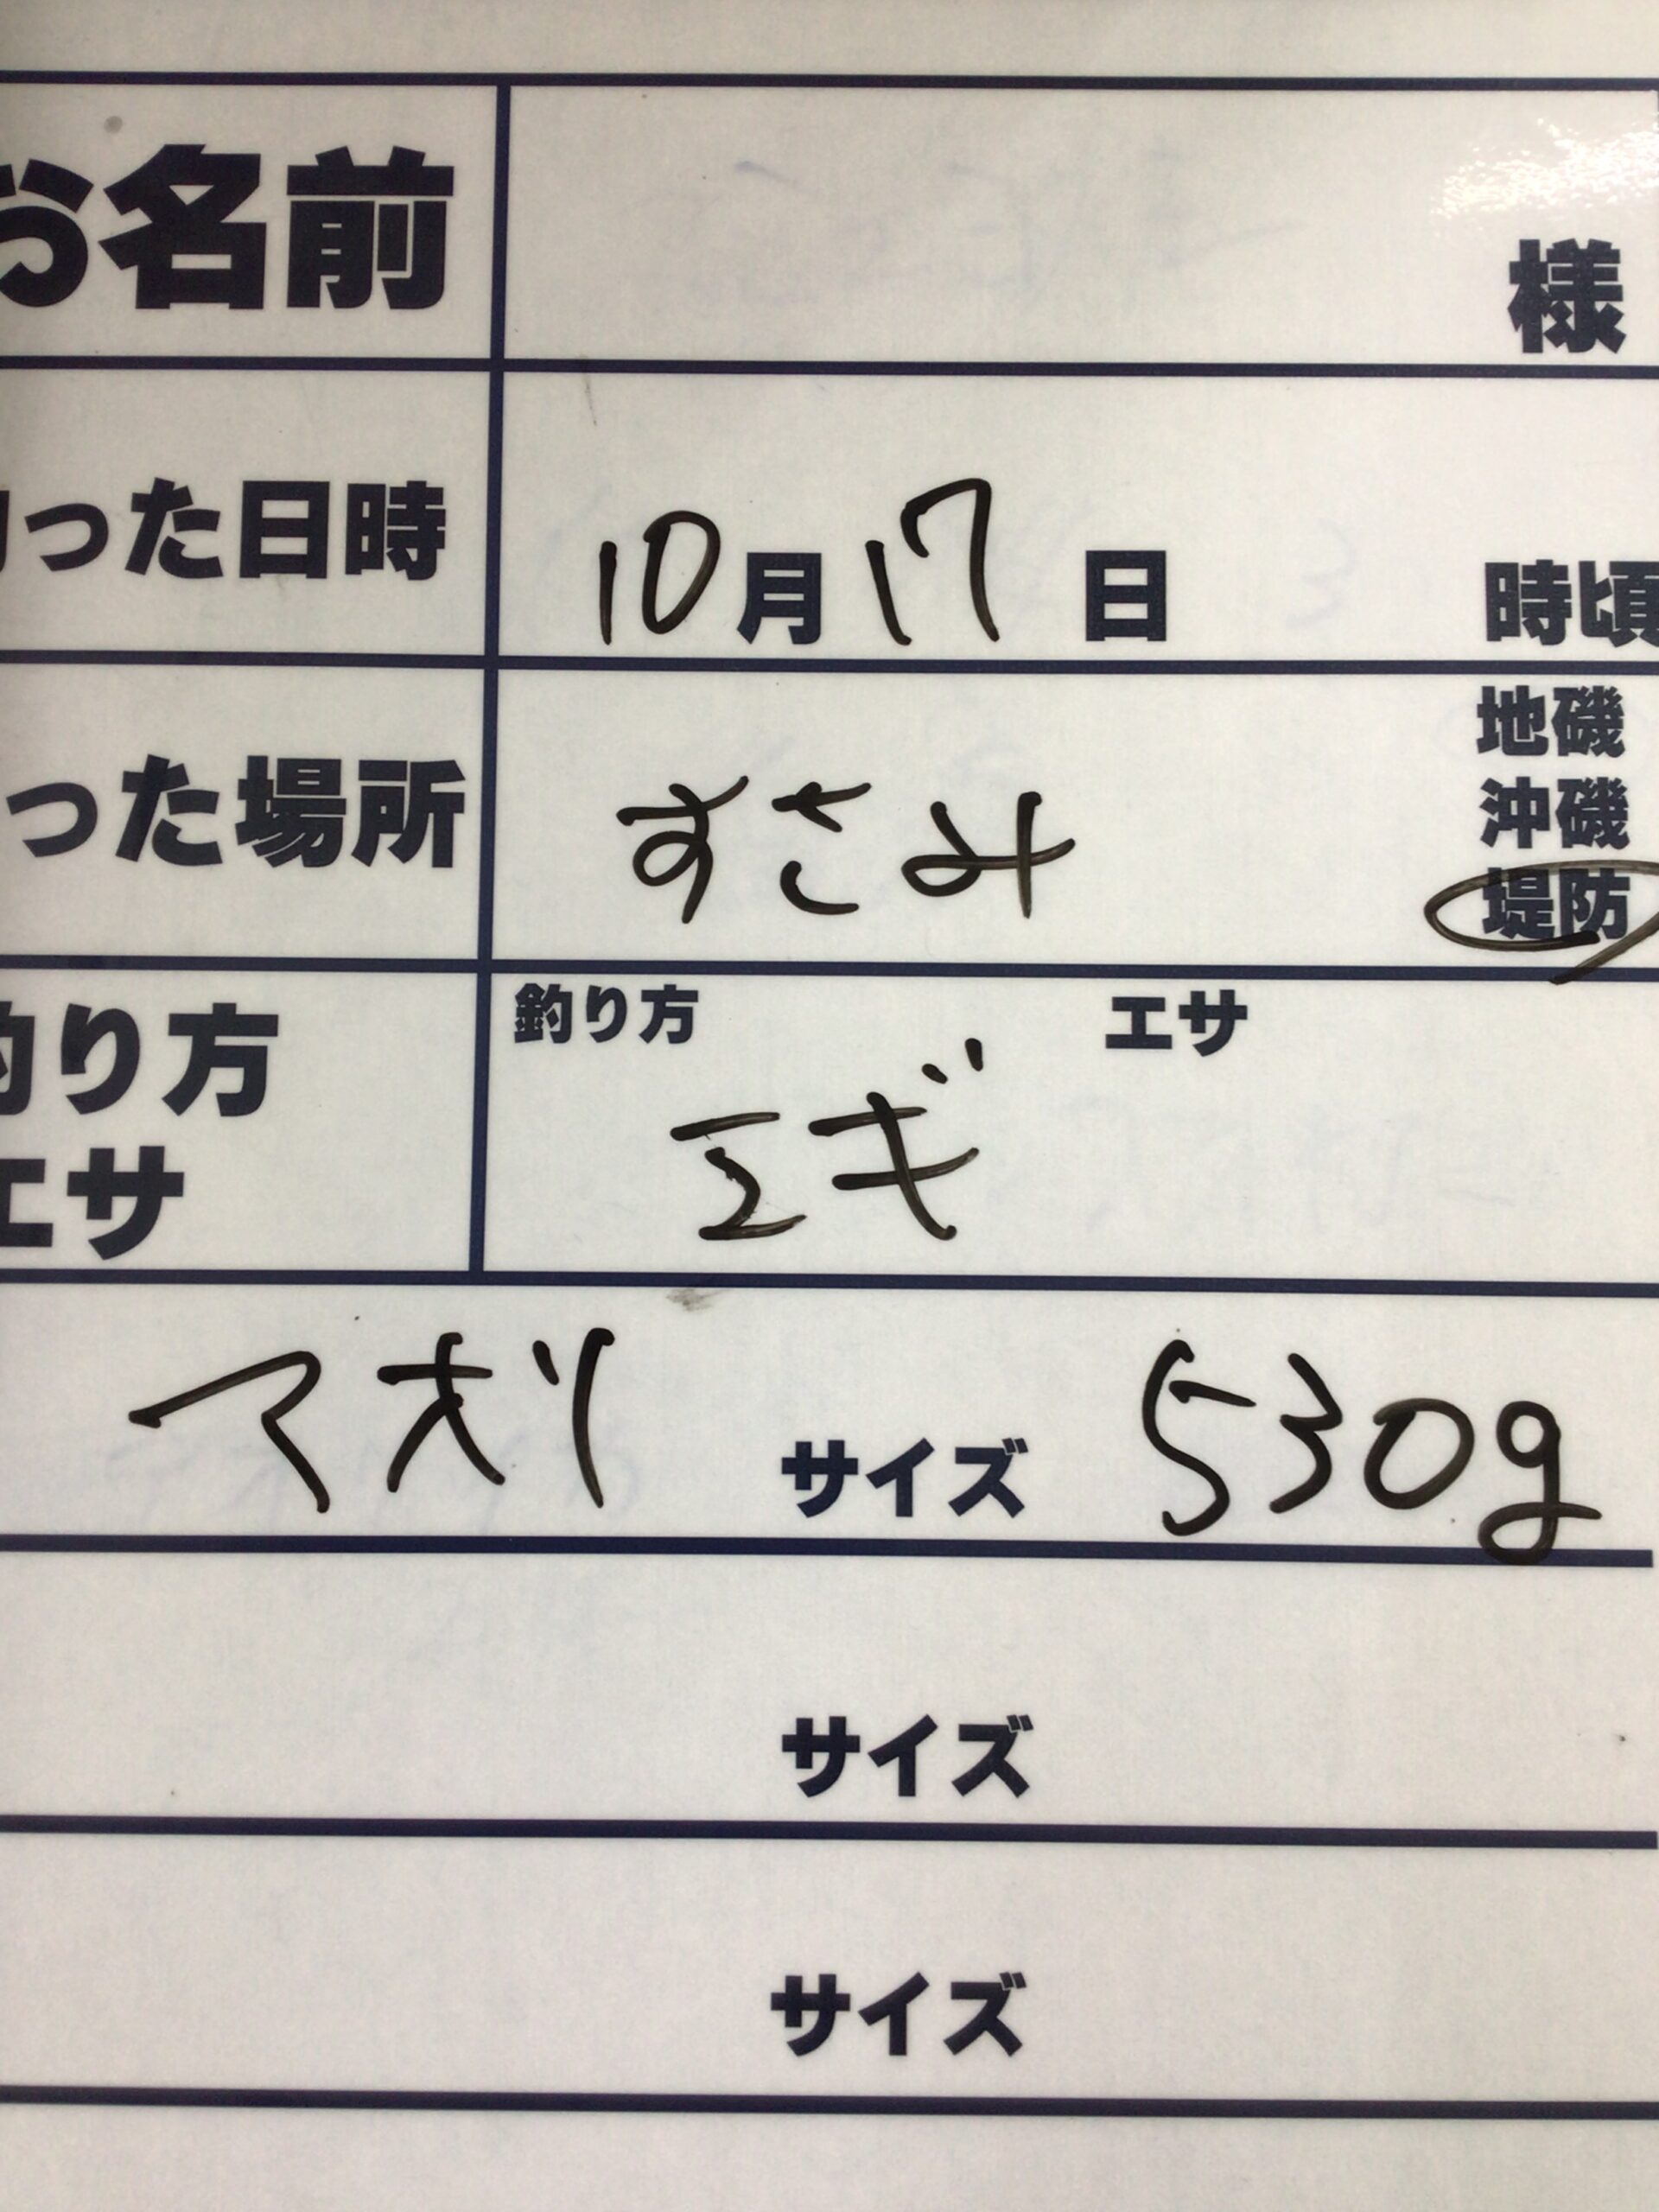 お名前 様
釣った日時 10月17日 時頃
った場所 すさみ 地磯
沖磯
堤防
釣り方 釣り方 エサ
エサ エギ
アオリ サイズ 530g
サイズ
サイズ